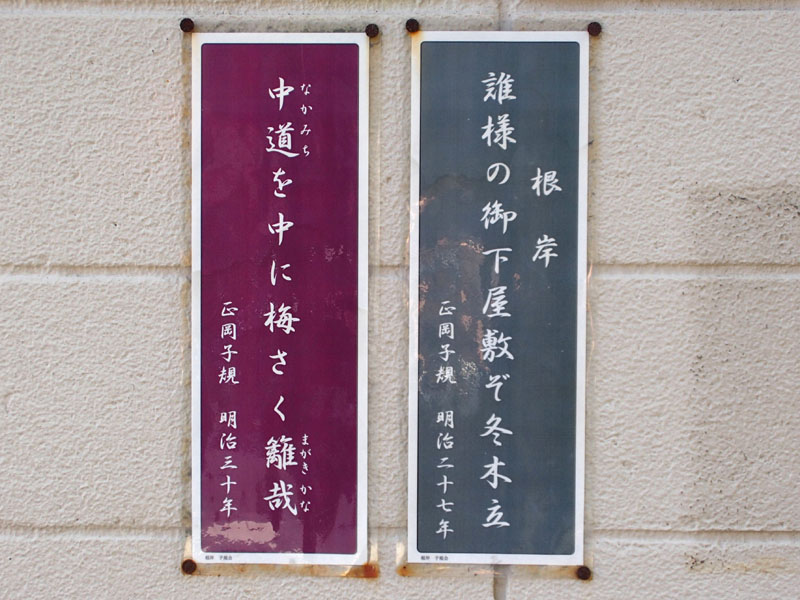 根岸
誰様の御下屋敷ぞ冬木立
正岡子規 明治二十七年
なかみち
まがきかな
中道を中に梅さく籬哉
正岡子規 明治三十年